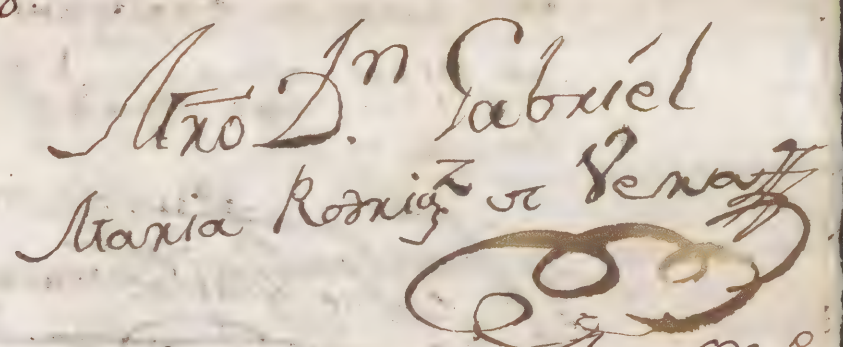 Mrô D.n Gabriél
Maria Rodrigz de Vera